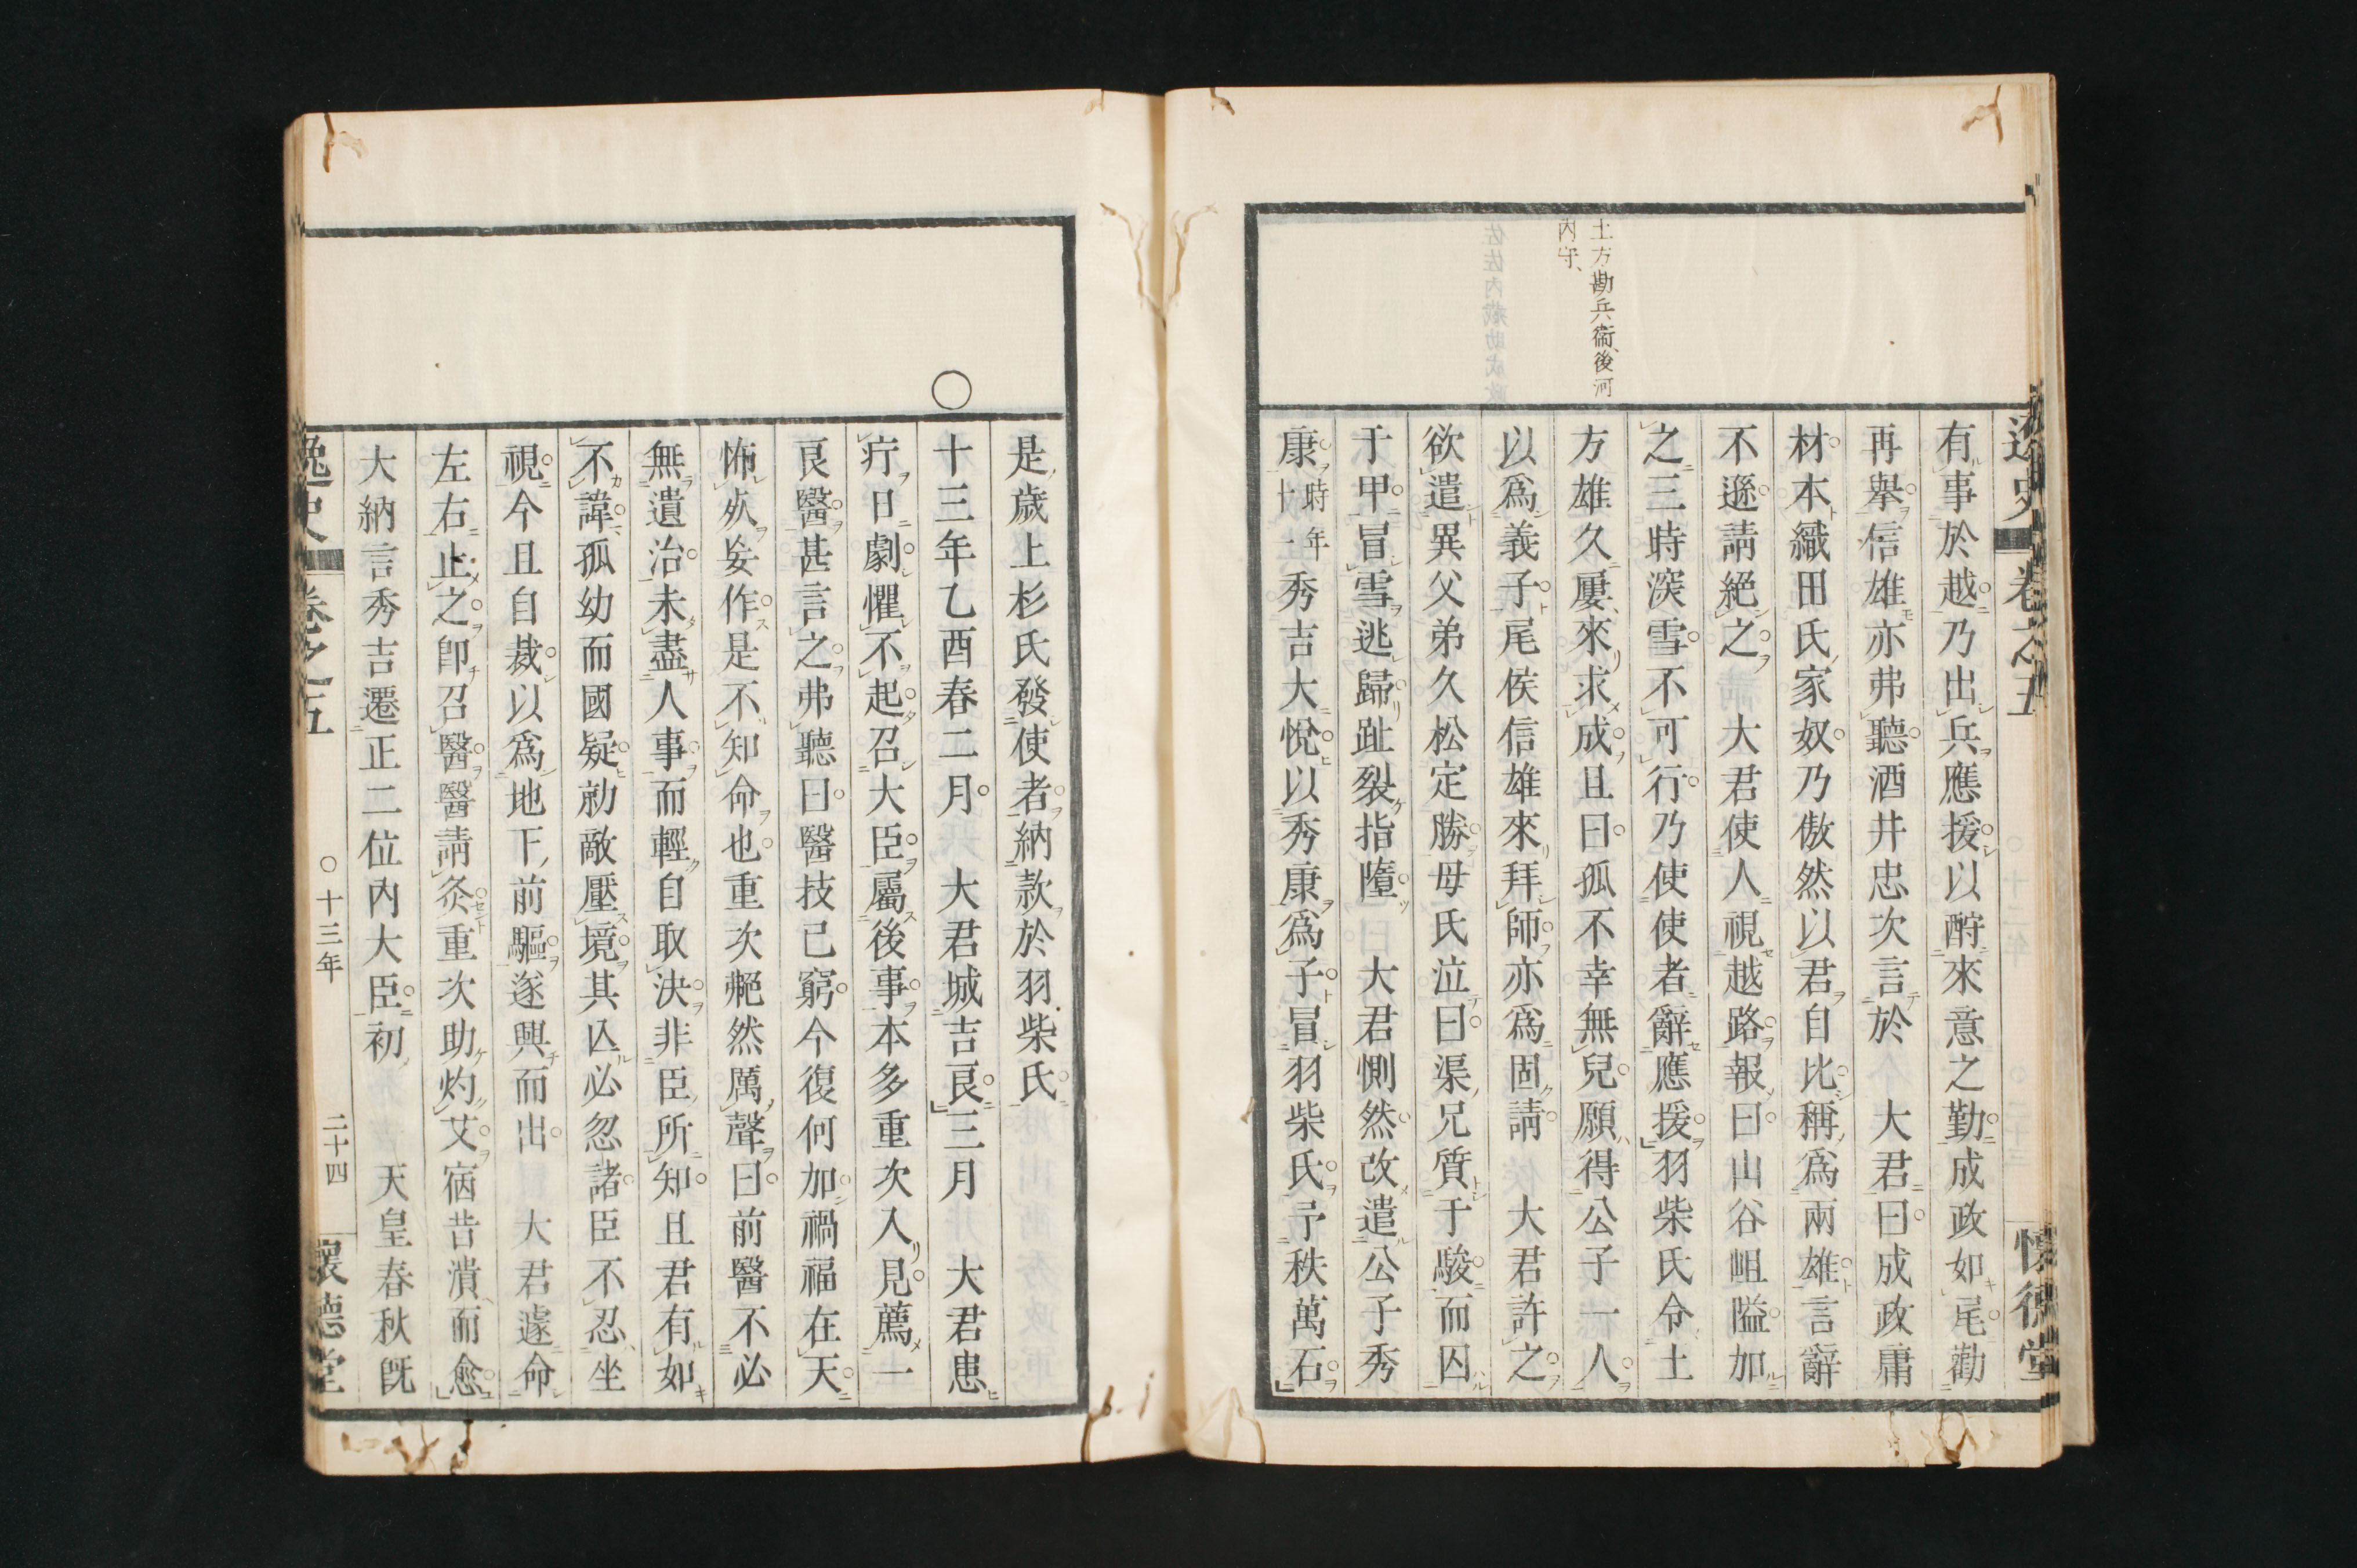 逸史 卷之五 懷德堂
土方勘兵衞、後河
內守、
有事於越乃出兵應援以酧來意之勤成政如尾勸
再擧信雄亦弗聽酒井忠次言於 大君曰成政庸
材本織田氏家奴乃傲然以君自比稱爲兩雄言辭
不遜請絕之 大君使人視越路報曰山谷岨隘加
之三時深雪不可行乃使使者辭應援羽柴氏令土
方雄久屢來求成且曰孤不幸無兒願得公子一人
以爲義子尾侯信雄來拜師亦爲固請 大君許之
欲遣異父弟久松定勝母氏泣曰渠兄質于駿而囚
于甲冒雪逃歸趾裂指墮 大君惻然改遣公子秀
康時年十一秀吉大悅以秀康爲子冒羽柴氏予秩萬石
是歲上杉氏發使者納款於羽柴氏
○
十三年乙酉春二月 大君城吉良三月 大君患
疔日劇懼不起召大臣屬後事本多重次入見薦一
良醫甚言之弗聽曰醫技已窮今復何加禍福在天
怖死妄作是不知命也重次艴然厲聲曰前醫不必
無遺治未盡人事而輕自取決非臣所知且君有如
不諱孤幼而國疑勍敵壓境其亾必忽諸臣不忍坐
視今且自裁以爲地下前驅遂興而出 大君遽命
左右止之卽召醫醫請灸重次助灼艾宿昔潰而愈
大納言秀吉遷正二位內大臣初 天皇春秋旣
逸史 卷之五 ○十三年 二十四 懷德堂